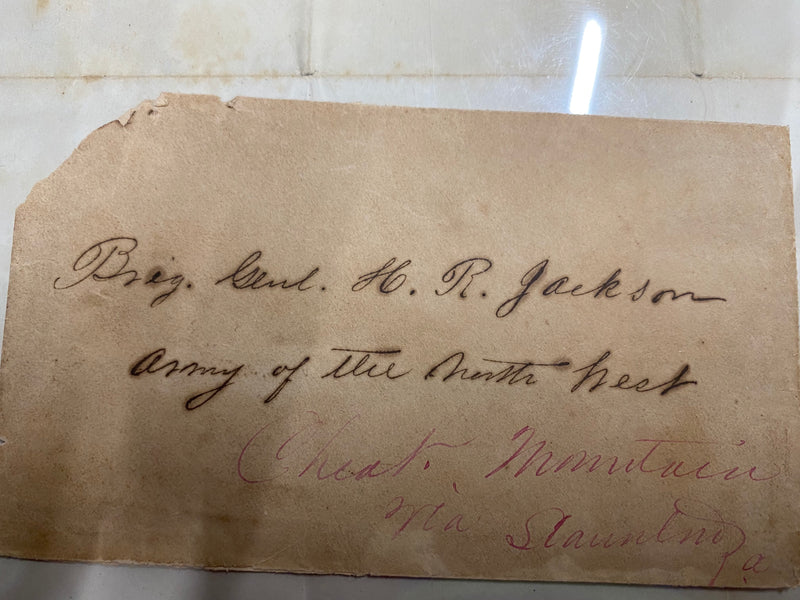 Brig. Genl. H. R. Jackson
Army of the North West
Cheat Mountain
via Staunton Va